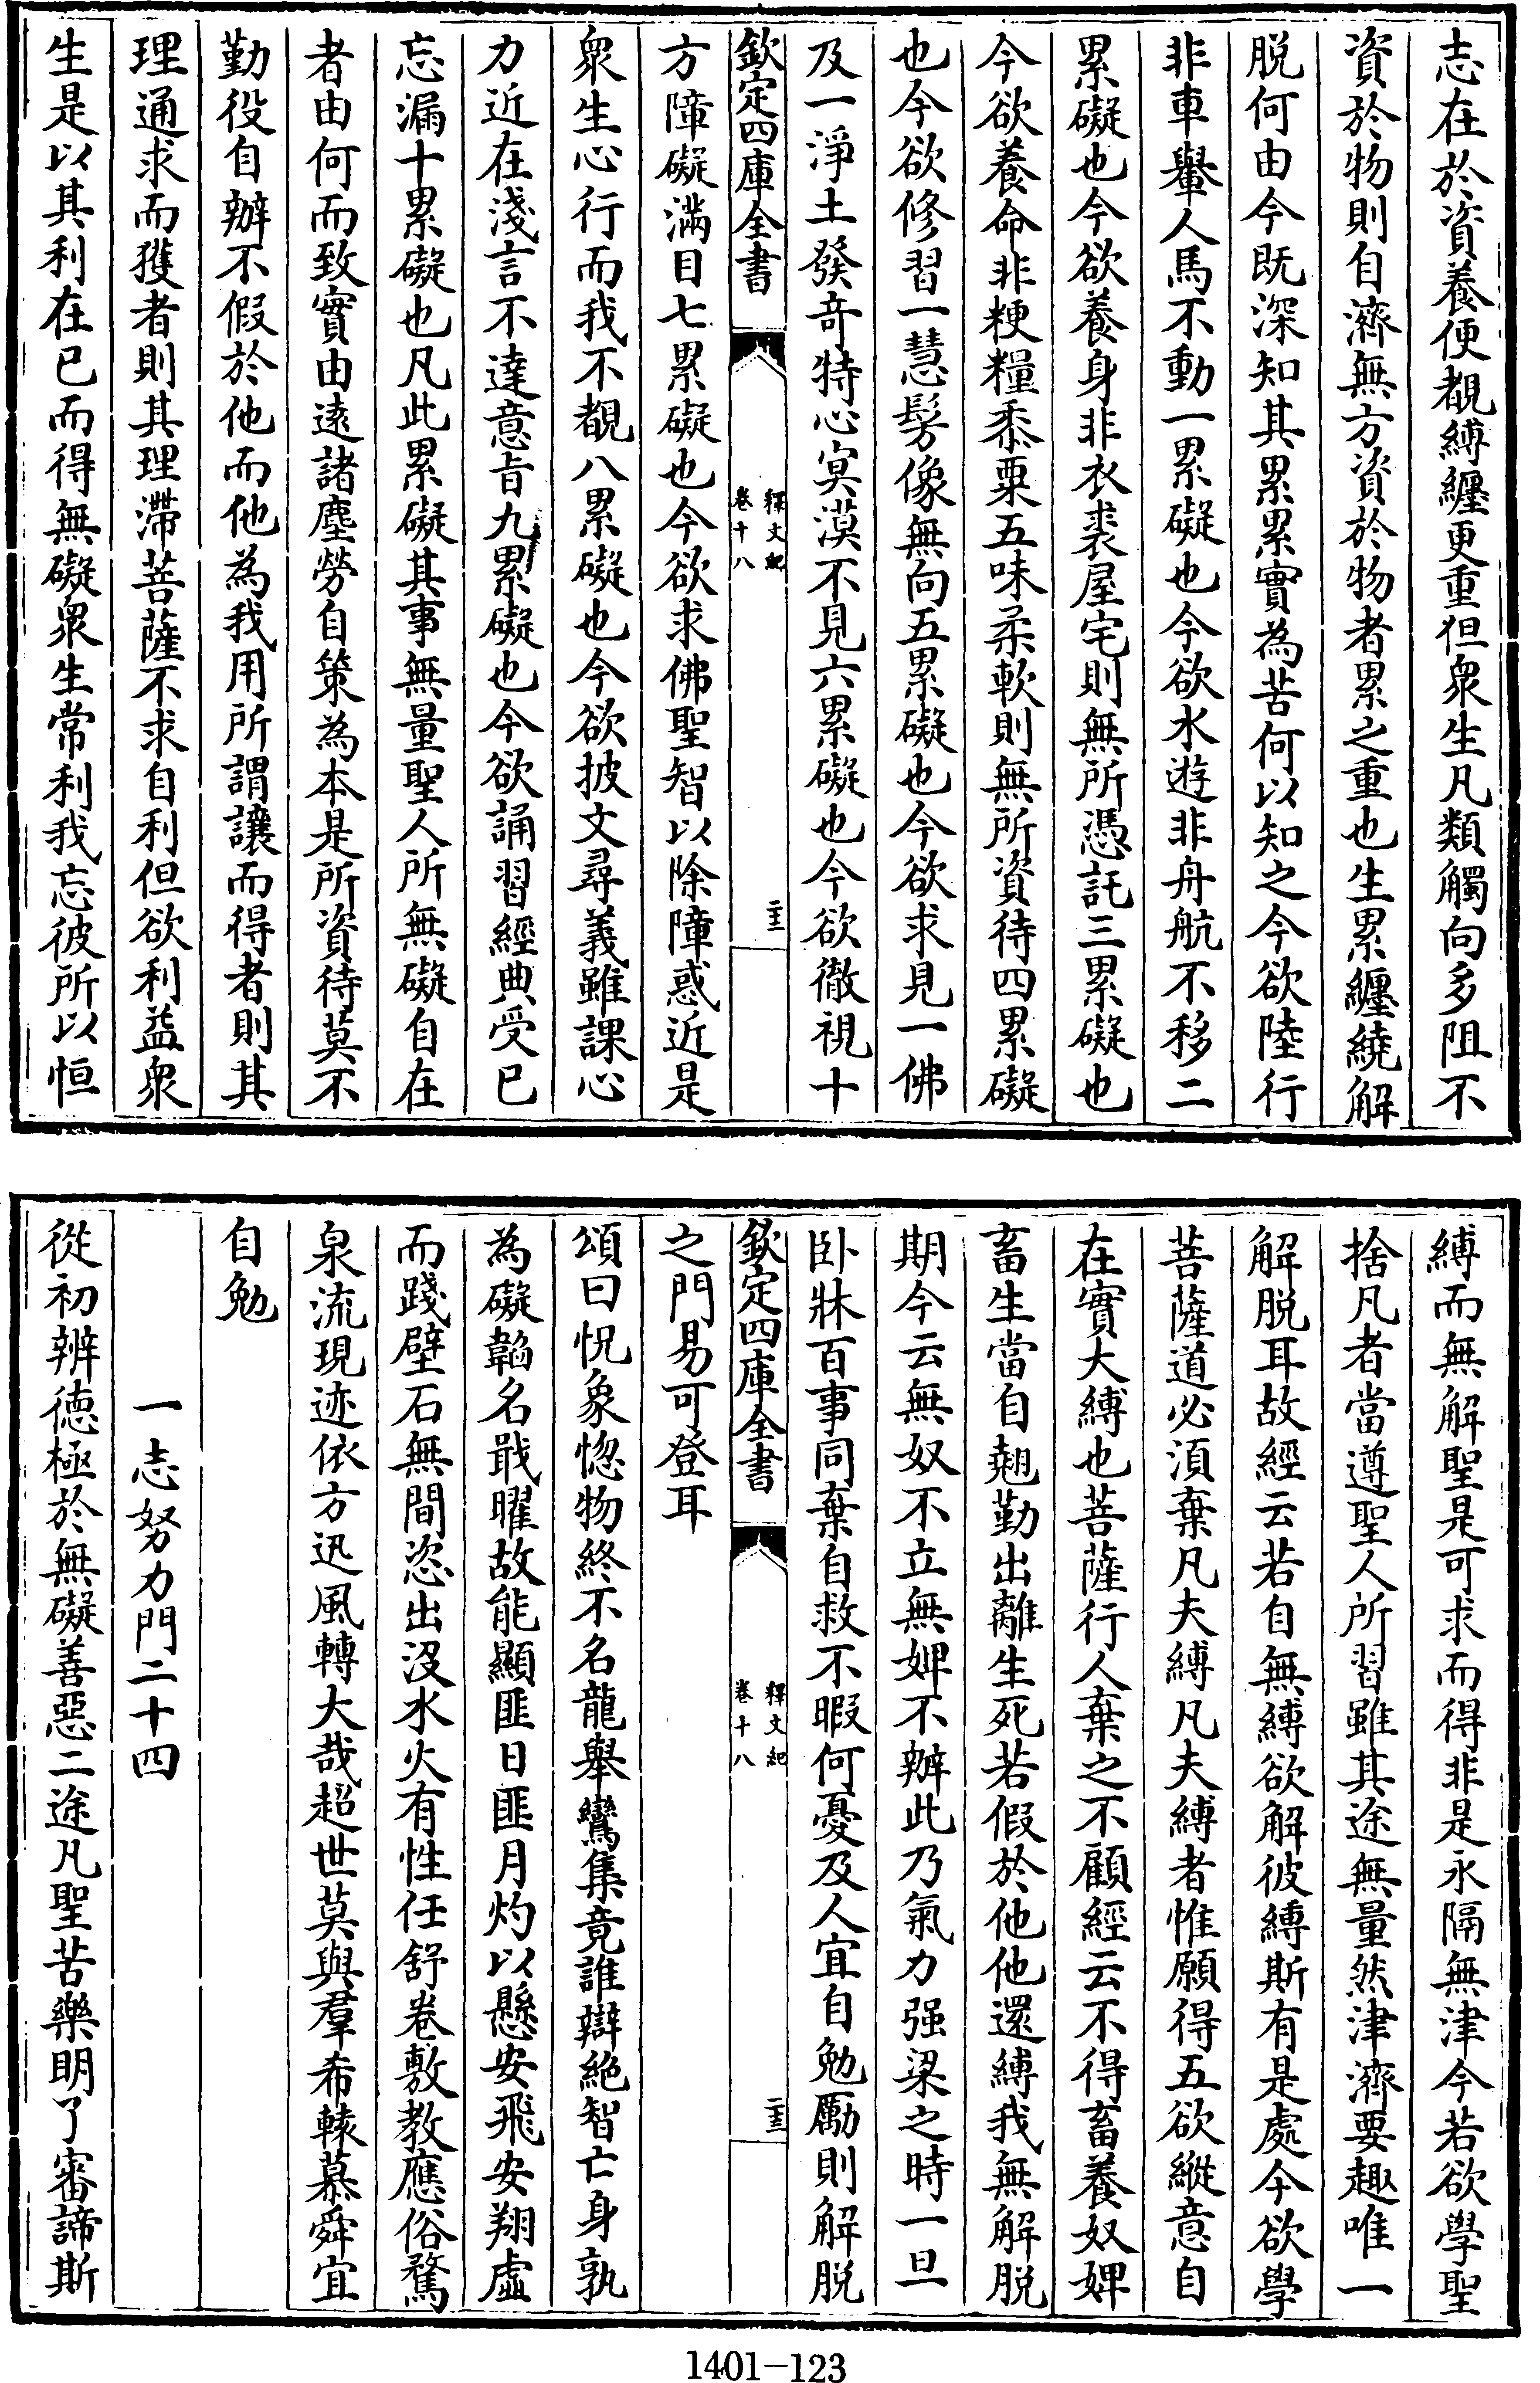 志在於資養便覩縛纏更重但衆生凡類觸向多阻不
資於物則自濟無方資於物者累之重也生累纏繞解
脱何由今既深知其累累實為苦何以知之今欲陸行
非車轝人馬不動一累礙也今欲水遊非舟航不移二
累礙也今欲養身非衣裘屋宅則無所憑託三累礙也
今欲養命非粳糧黍粟五味柔軟則無所資待四累礙
也今欲修習一慧髣像無向五累礙也今欲求見一佛
及一淨土發奇特心寞漠不見六累礙也今欲徹視十
欽定四庫全書
釋文紀
卷十八
二十三
方障礙滿目七累礙也今欲求佛聖智以除障惑近是
衆生心行而我不覩八累礙也今欲披文尋義雖課心
力近在淺言不達意旨九累礙也今欲誦習經典受已
忘漏十累礙也凡此累礙其事無量聖人所無礙自在
者由何而致實由遠諸塵勞自策為本是所資待莫不
勤役自辦不假於他而他為我用所謂讓而得者則其
理通求而獲者則其理滯菩薩不求自利但欲利益衆
生是以其利在已而得無礙衆生常利我忘彼所以恒
縛而無解聖是可求而得非是永隔無津今若欲學聖
捨凡者當遵聖人所習雖其途無量然津濟要趣唯一
解脱耳故經云若自無縛欲解彼縛斯有是處今欲學
菩薩道必須棄凡夫縛凡夫縛者惟願得五欲縱意自
在實大縛也菩薩行人棄之不顧經云不得畜養奴婢
畜生當自翹勤出離生死若假於他他還縛我無解脱
期今云無奴不立無婢不辦此乃氣力强梁之時一旦
卧牀百事同棄自救不暇何憂及人宜自勉勵則解脱
欽定四庫全書
釋文紀
卷十八
二十三
之門易可登耳
頌曰怳象惚物終不名龍舉鸞集竟誰辯絶智亡身孰
為礙韜名戢曜故能顯匪日匪月灼以懸安飛安翔虚
而踐壁石無間恣出没水火有性任舒卷敷教應俗騖
泉流現迹依方迅風轉大哉超世莫與羣希轅慕舜宜
自勉
一志努力門二十四
從初辨德極於無礙善惡二途凡聖苦樂明了審諦斯
1401-123